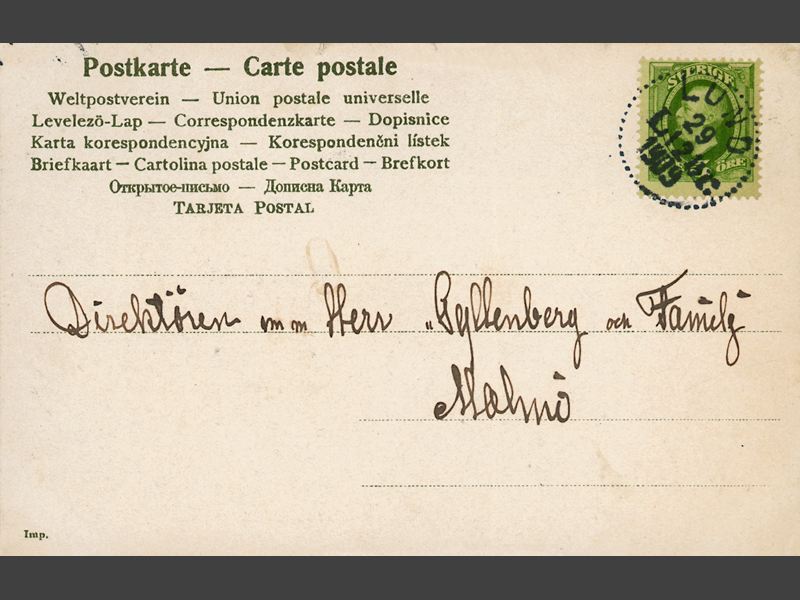 Postkarte — Carte postale
Weltpostverein — Union postale universelle
Levelezõ-Lap — Correspondenzkarte — Dopisnice
Karta korespondencyjna — Korespondenčni lístek
Briefkaart — Cartolina postale — Postcard — Brefkort
Открытое-письмо — Дописна Карта
TARJETA POSTAL
SVERIGE
ÖRE
LUND
29 12
1909
Direktören m m Herr „Gyllenberg och Familj"
Malmö
Imp.